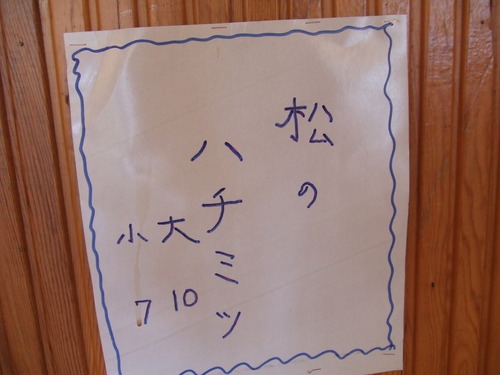 松の
ハチミツ
大 10
小 7